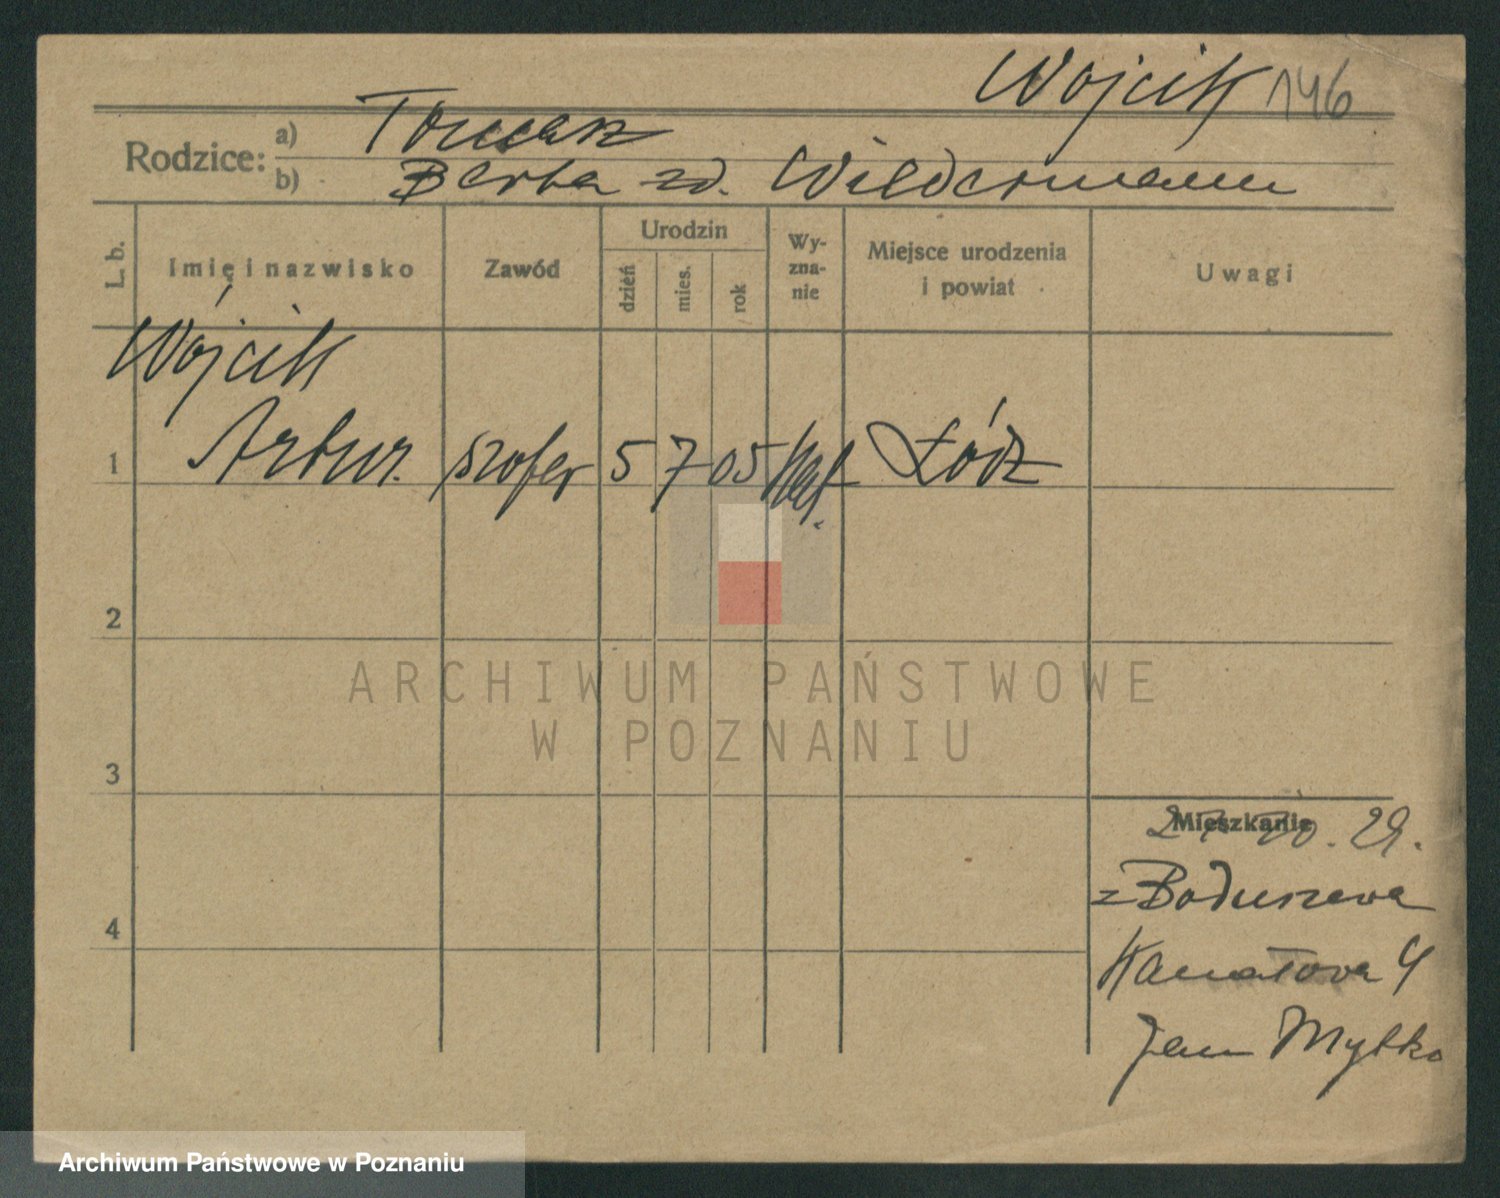 Wojcik 146
Rodzice:
a) Tomasz
b) Berta zd. Wiedermann
L. b.
Imię i nazwisko
Zawód
Urodzin
dzień
mies.
rok
Wy-
zna-
nie
Miejsce urodzenia
i powiat
Uwagi
Wójcik
1 Artur. szofer 5 7 05 kat. Łódź
2
3
4
Mieszkanie
29.
z Boduszewa
Kanałowa 4
Jan Mytko
ARCHIWUM PAŃSTWOWE
W POZNANIU
Archiwum Państwowe w Poznaniu